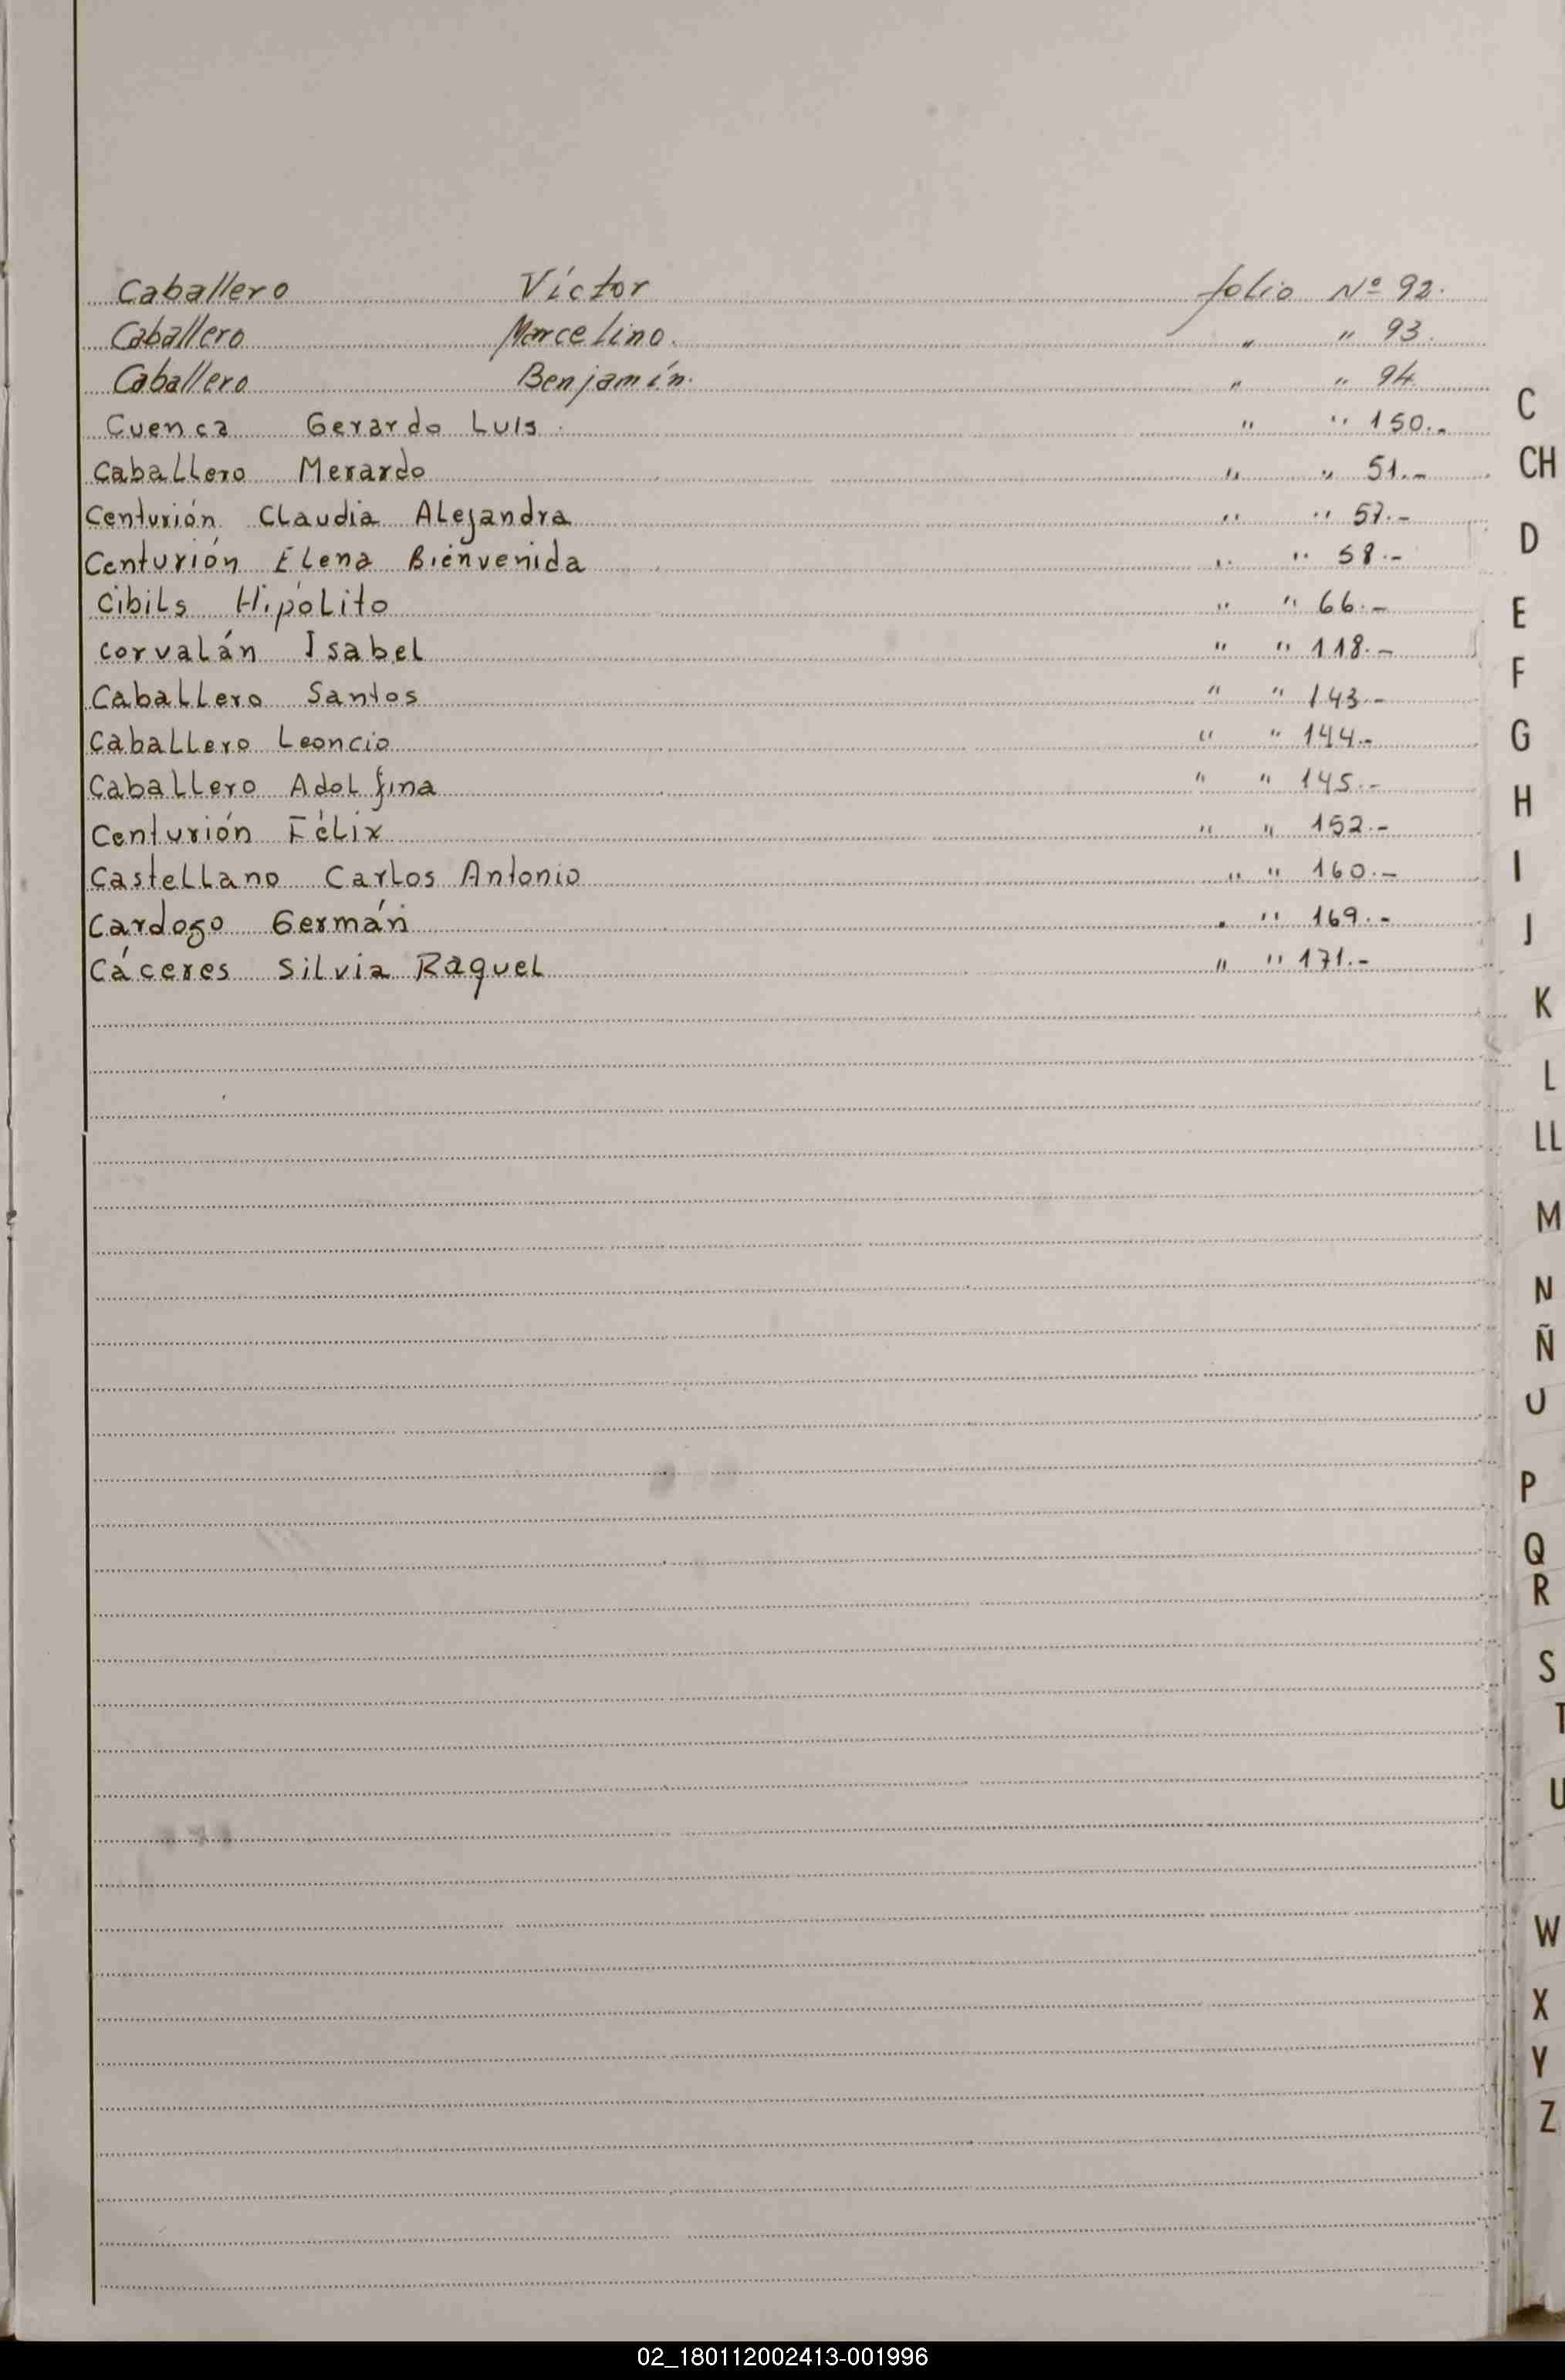 Caballero Víctor folio Nº 92.
Caballero Marcelino. " " 93.
Caballero Benjamín. " " 94
Cuenca Gerardo Luis. " " 150.-
Caballero Merardo " " 51.-
Centurión Claudia Alejandra " " 57.-
Centurión Elena Bienvenida " " 58.-
Cibils Hipólito " " 66.-
Corvalán Isabel " " 118.-
Caballero Santos " " 143.-
Caballero Leoncio " " 144.-
Caballero Adolfina " " 145.-
Centurión Félix " " 152.-
Castellano Carlos Antonio " " 160.-
Cardozo Germán " " 169.-
Cáceres Silvia Raquel " " 171.-
C
CH
D
E
F
G
H
I
J
K
L
LL
M
N
Ñ
O
P
Q
R
S
T
U
W
X
Y
Z
02_180112002413-001996